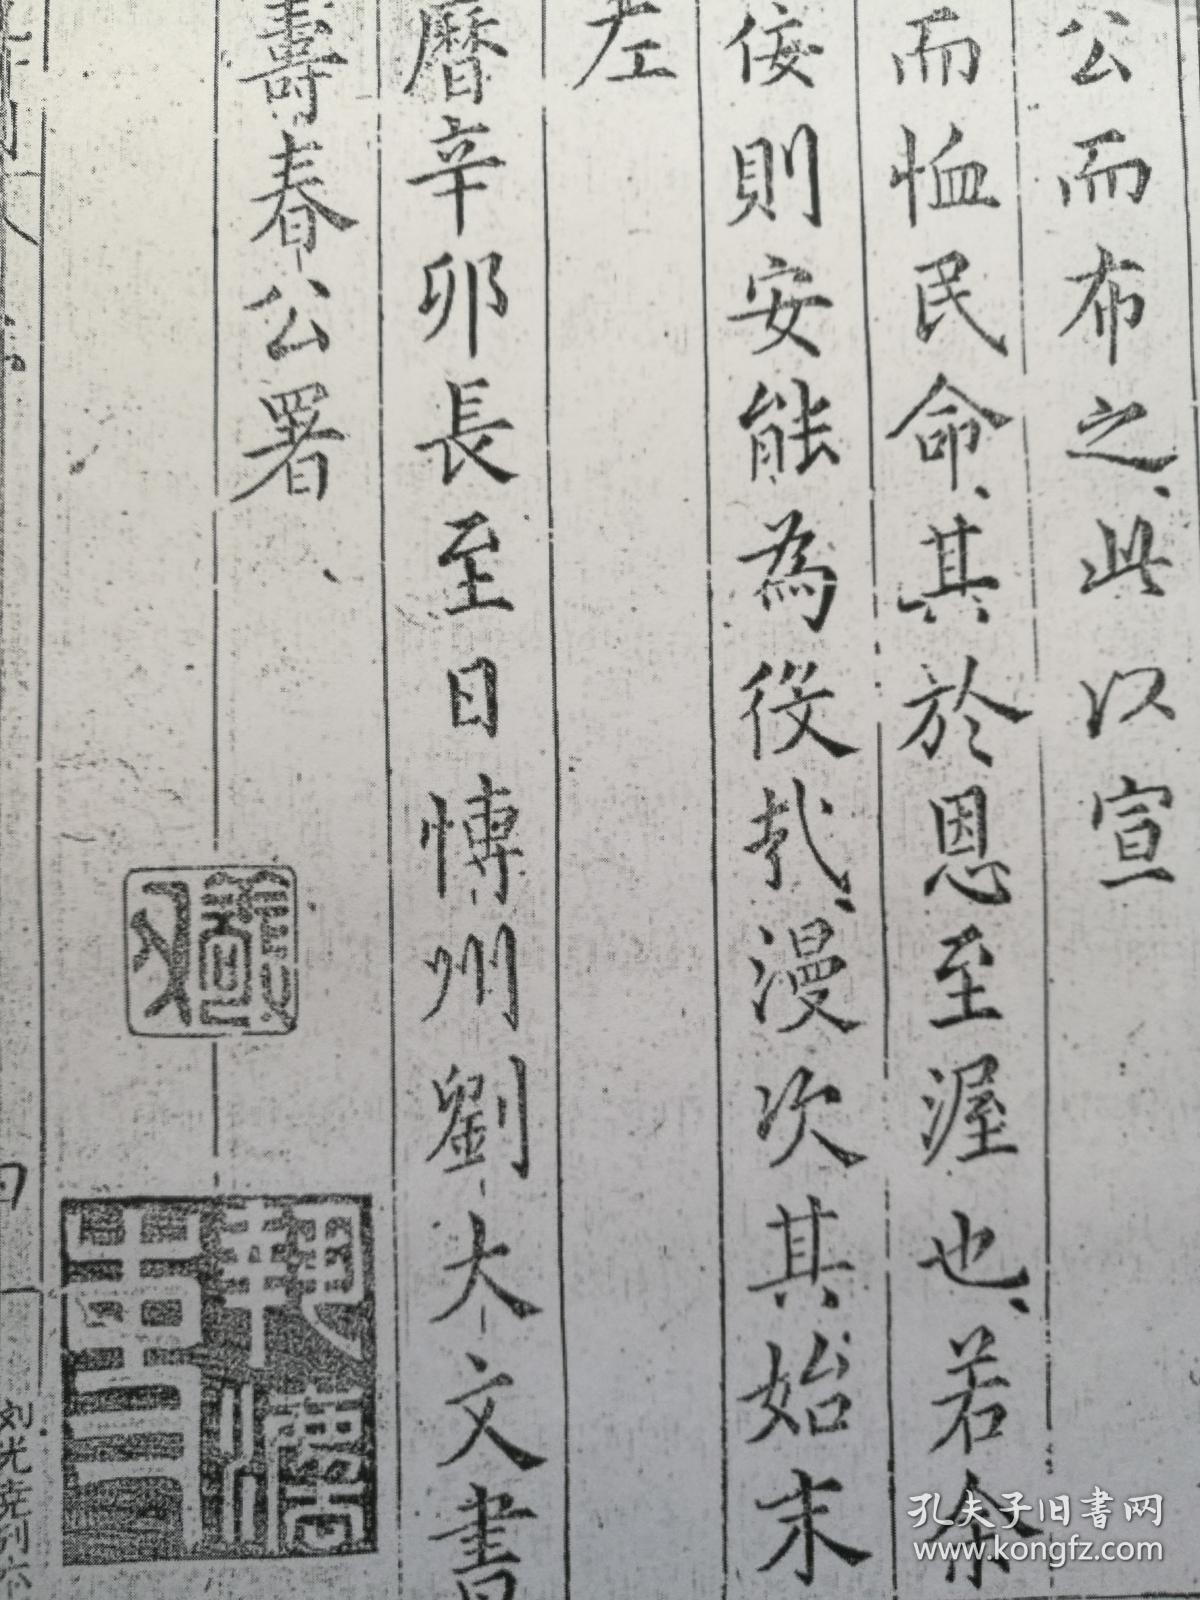 公而布之、此以宣
而恤民命、其於恩至渥也、若余
佞則安能為役哉、漫次其始末
左
曆辛卯長至日博州劉大文書
壽春公署、
刘光尧刻六
孔夫子旧书网
www.kongfz.com